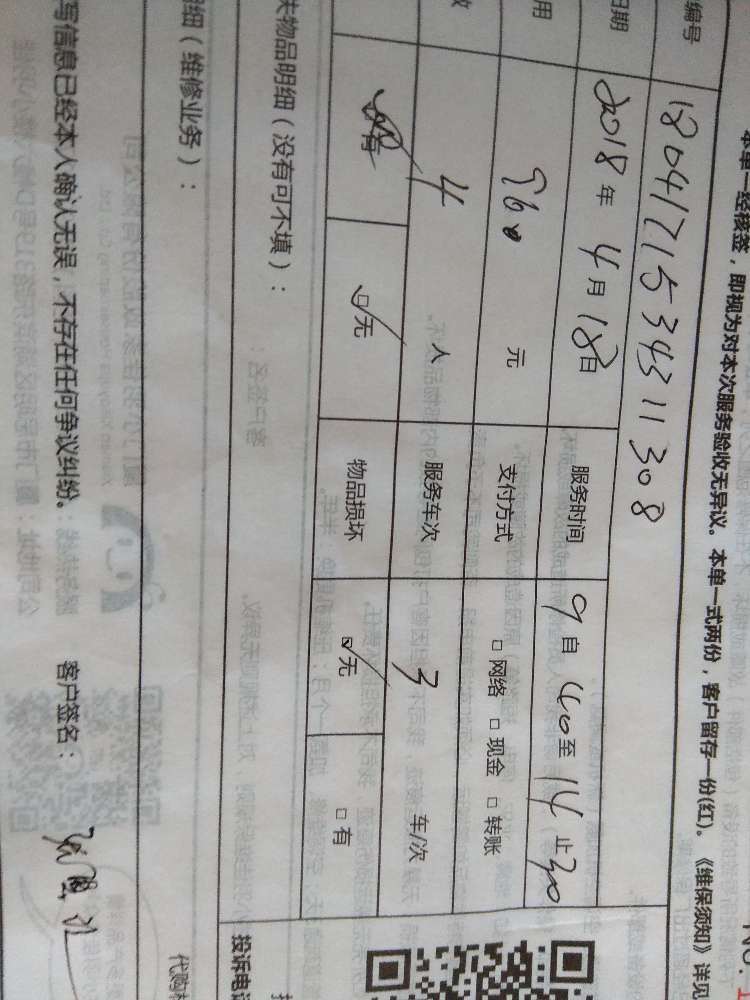 NO.
本单一经核签，即视为对本次服务验收无异议。本单一式两份，客户留存一份(红)。《维保须知》详见
编号 1804171534311308
日期 2018年4月18日 服务时间 9自40至14止30
用 元 支付方式 □网络 □现金 □转账
数 4 人 服务车次 3 车/次
有 ☑无 物品损坏 ☑无 □有
关物品明细（没有可不填）：
细（维修业务）：
投诉电
代购
写信息已经本人确认无误，不存在任何争议纠纷。 客户签名：